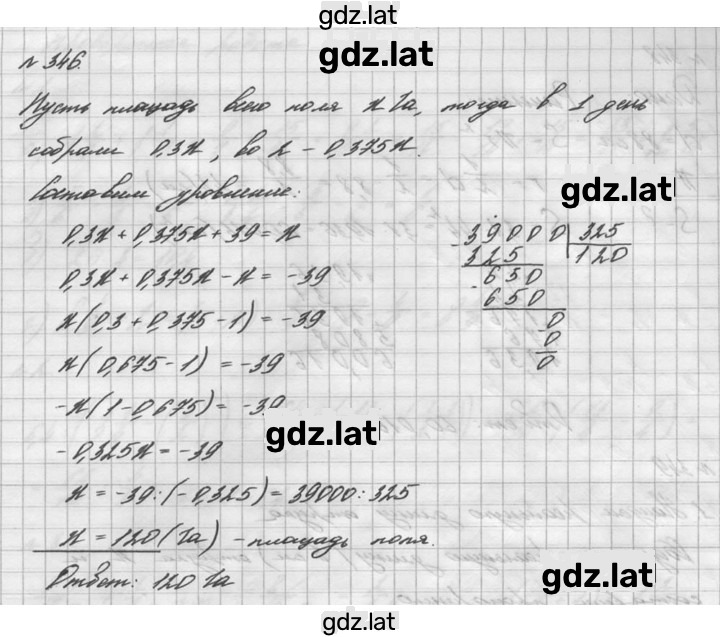 gdz.lat
gdz.lat
№ 346.
Пусть площадь всего поля x га, тогда в 1 день
собрали 0,3x, во 2 – 0,375x.
Составим уравнение:
gdz.lat
0,3x + 0,375x + 39 = x
0,3x + 0,375x – x = –39
x(0,3 + 0,375 – 1) = –39
x(0,675 – 1) = –39
–x(1 – 0,675) = –39
–0,325x = –39
x = –39 : (–0,325) = 39000 : 325
x = 120 (га) – площадь поля.
Ответ: 120 га
39000 325
325 120
650
650
0
0
0
gdz.lat
gdz.lat
gdz.lat